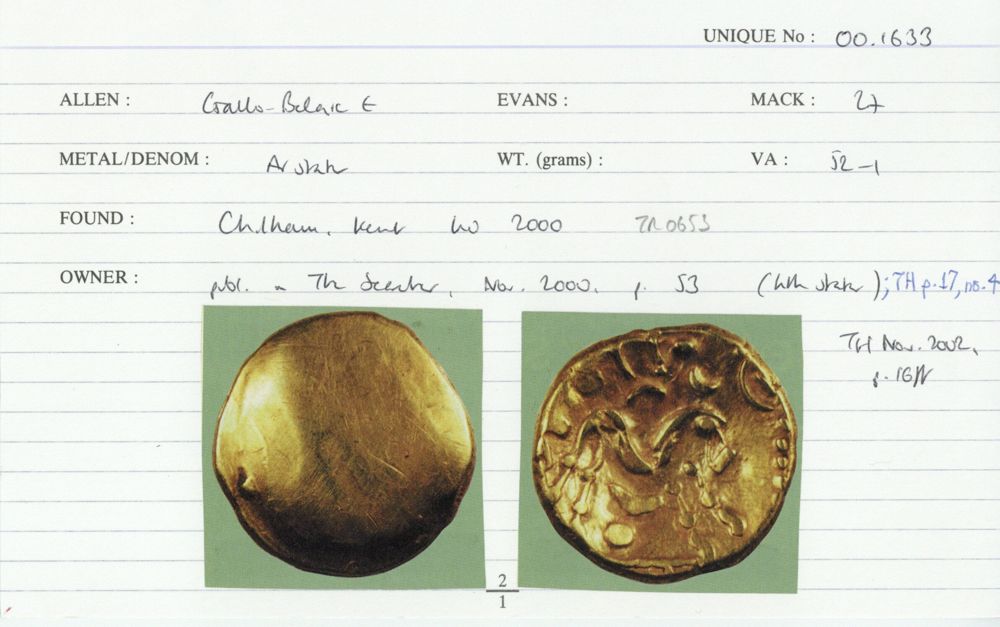 UNIQUE No : 00.1633
ALLEN : Gallo-Belgic E EVANS : MACK : 27
METAL/DENOM : AV stater WT. (grams) : VA : 52-1
FOUND : Chilham, Kent 2000 TR0653
OWNER : publ. in The Searcher, Nov. 2000, p. 53 ; TH p.17, no.4
TH Nov. 2002,
p. 16
2
1